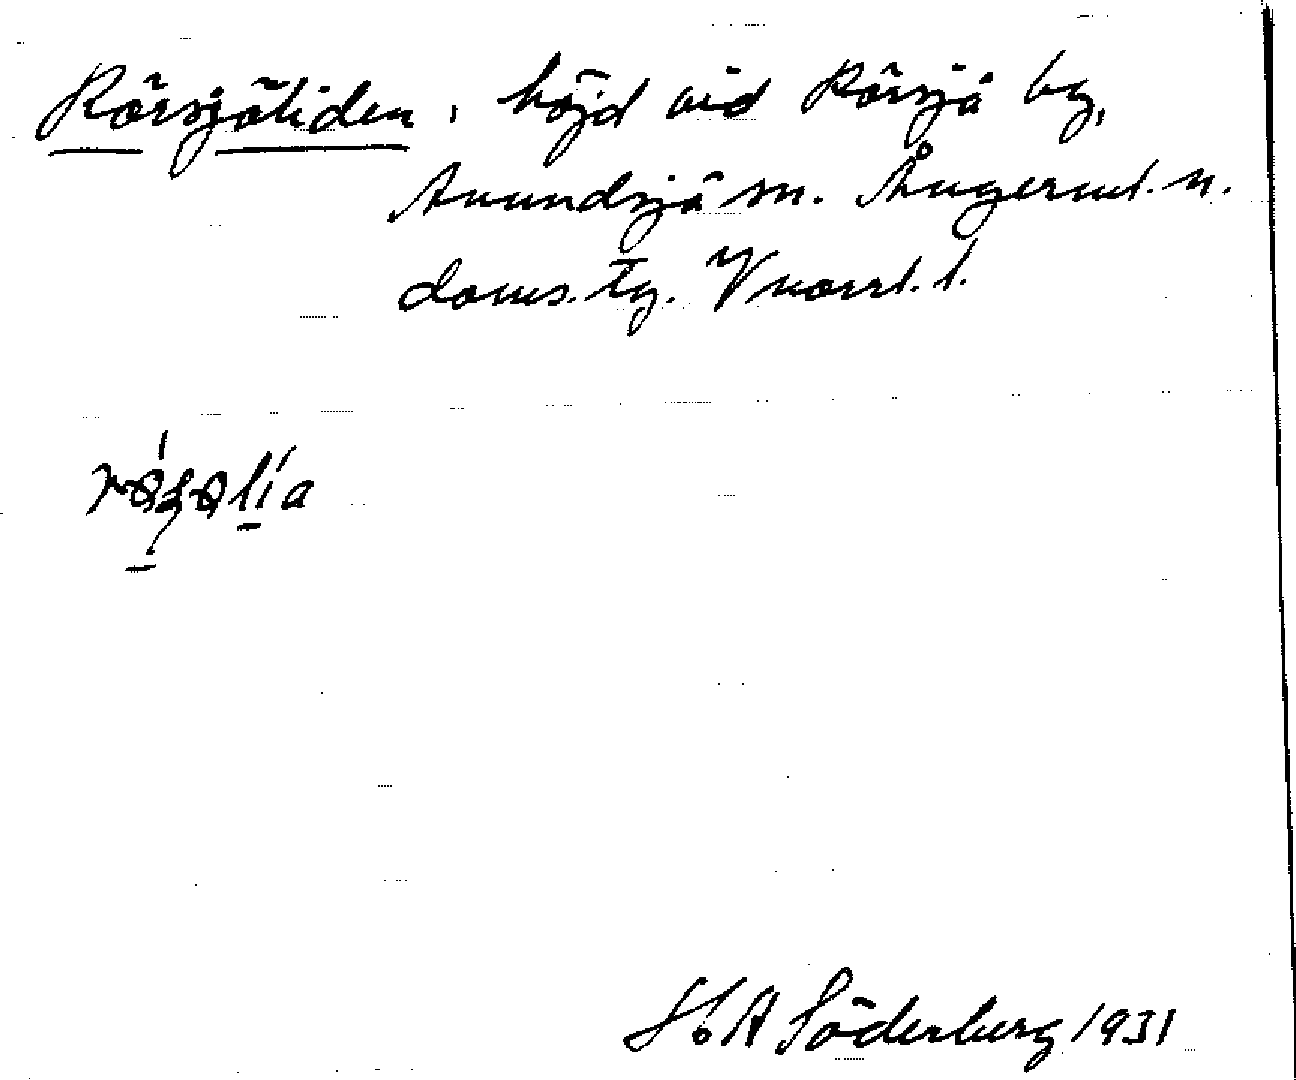 Rörsjöliden, höjd vid Rörsjö by,
Anundsjö sn. Ångerml. n.
doms. tg. Vnorrl. l.
H. A Söderberg 1931